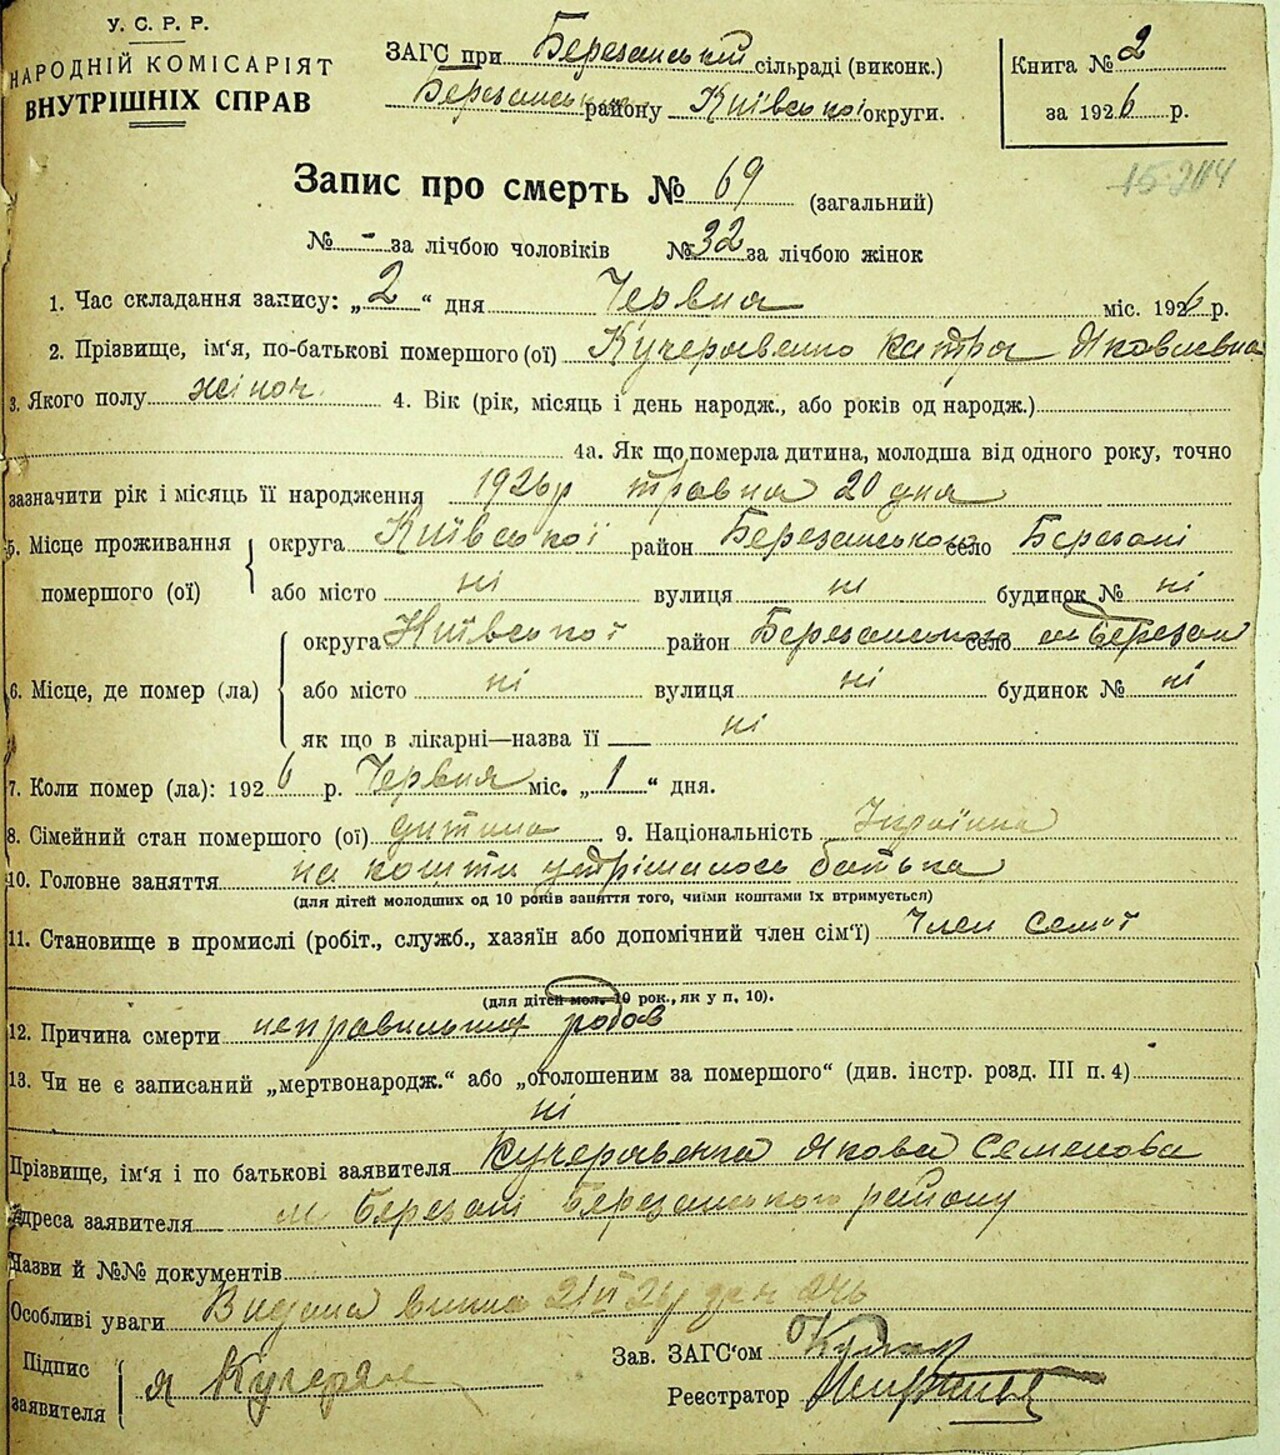 У. С. Р. Р.
НАРОДНІЙ КОМІСАРІЯТ
ВНУТРІШНІХ СПРАВ
ЗАГС при Березанській сільраді (виконк.)
Березанського району Київської округи.
Книга № 2
за 1926 р.
15-204
Запис про смерть № 69 (загальний)
№ - за лічбою чоловіків № 32 за лічбою жінок
1. Час складання запису: „2“ дня Червня міс. 1926 р.
2. Прізвище, ім'я, по-батькові помершого (ої) Кучерявенко Катря Яковлевна
3. Якого полу жіноч. 4. Вік (рік, місяць і день народж., або років од народж.)
4а. Як що померла дитина, молодша від одного року, точно
зазначити рік і місяць її народження 1926р травня 20 дня
5. Місце проживання помершого (ої) округа Київської район Березанського село Березані
або місто ні вулиця ні будинок № ні
6. Місце, де помер (ла) округа Київської район Березанського село м Березані
або місто ні вулиця ні будинок № ні
як що в лікарні—назва її ні
7. Коли помер (ла): 1926 р. Червня міс. „1“ дня.
8. Сімейний стан помершого (ої) дитина 9. Національність Україна
10. Головне заняття на кошти утрімалось батька
(для дітей молодших од 10 років заняття того, чиїми коштами їх втримується)
11. Становище в промислі (робіт., служб., хазяїн або допомічний член сім'ї) Член семії
(для дітей мол. 10 рок., як у п. 10).
12. Причина смерти неправильних родов
13. Чи не є записаний „мертвонародж.“ або „оголошеним за помершого“ (див. інстр. розд. III п. 4)
ні
Прізвище, ім'я і по батькові заявителя Кучерявенка Якова Семенова
Адреса заявителя м Березані Березанського району
Назви й №№ документів
Особливі уваги Видана
Підпис заявителя я Кучеряв
Зав. ЗАГС'ом
Реестратор